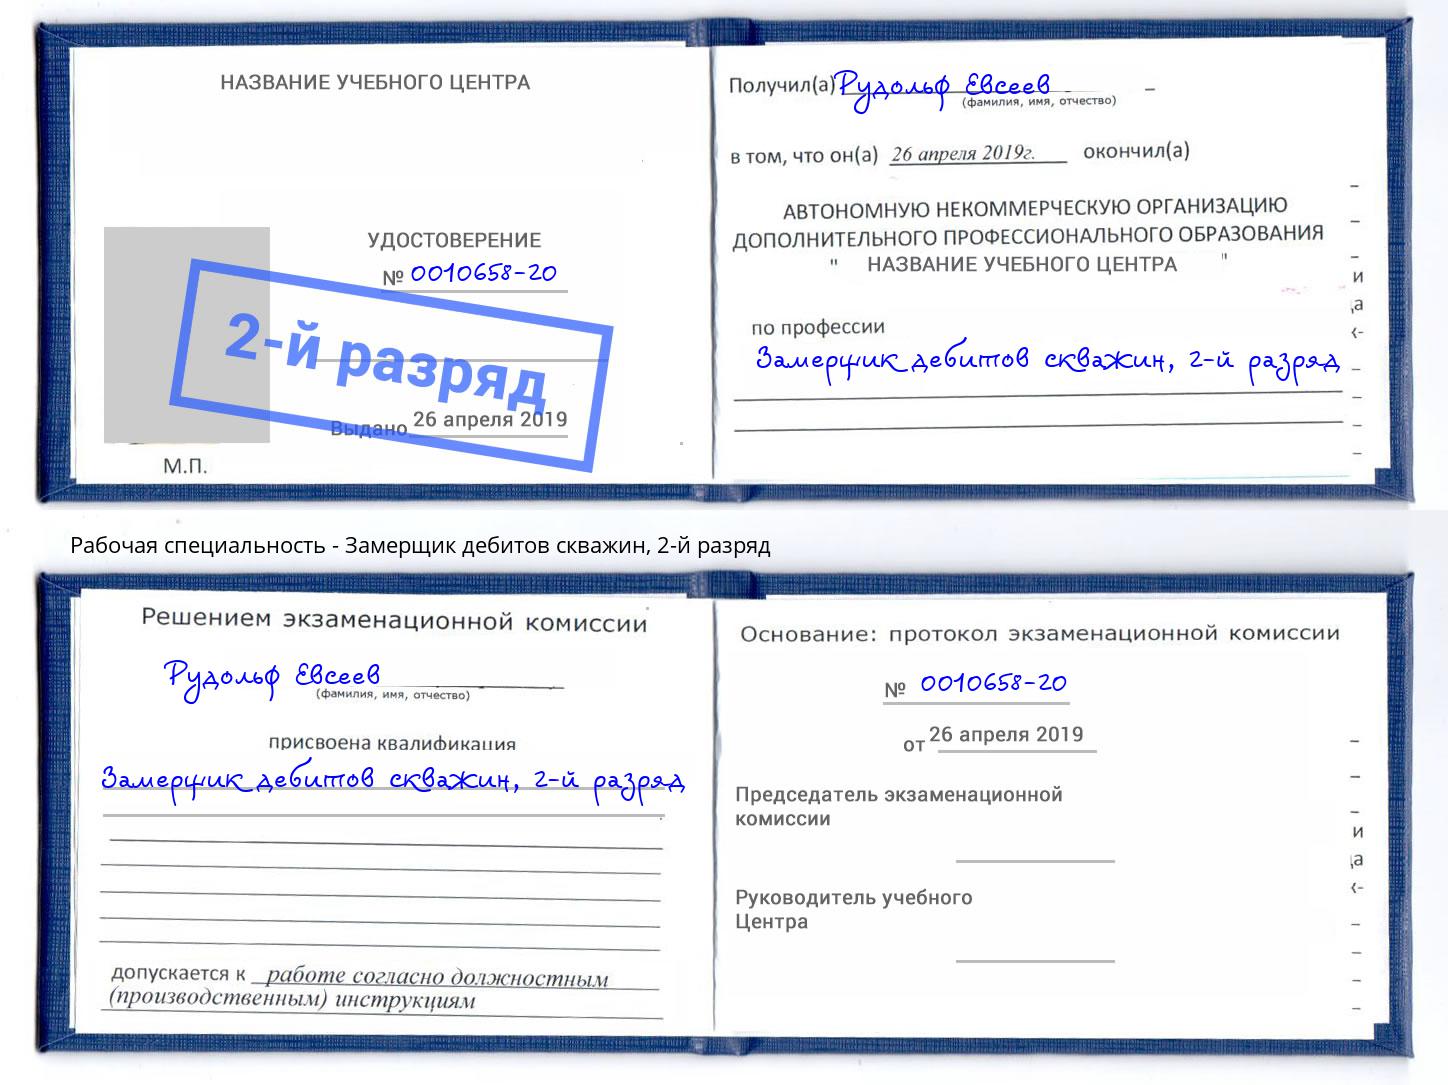 НАЗВАНИЕ УЧЕБНОГО ЦЕНТРА
УДОСТОВЕРЕНИЕ
№ 0010658-20
2-й разряд
Выдано 26 апреля 2019
М.П.
Получил(а) Рудольф Евсеев
(фамилия, имя, отчество)
в том, что он(а) 26 апреля 2019г. окончил(а)
АВТОНОМНУЮ НЕКОММЕРЧЕСКУЮ ОРГАНИЗАЦИЮ
ДОПОЛНИТЕЛЬНОГО ПРОФЕССИОНАЛЬНОГО ОБРАЗОВАНИЯ
" НАЗВАНИЕ УЧЕБНОГО ЦЕНТРА "
по профессии
Замерщик дебитов скважин, 2-й разряд
Рабочая специальность - Замерщик дебитов скважин, 2-й разряд
Решением экзаменационной комиссии
Рудольф Евсеев
(фамилия, имя, отчество)
присвоена квалификация
Замерщик дебитов скважин, 2-й разряд
допускается к работе согласно должностным
(производственным) инструкциям
Основание: протокол экзаменационной комиссии
№ 0010658-20
от 26 апреля 2019
Председатель экзаменационной
комиссии
Руководитель учебного
Центра